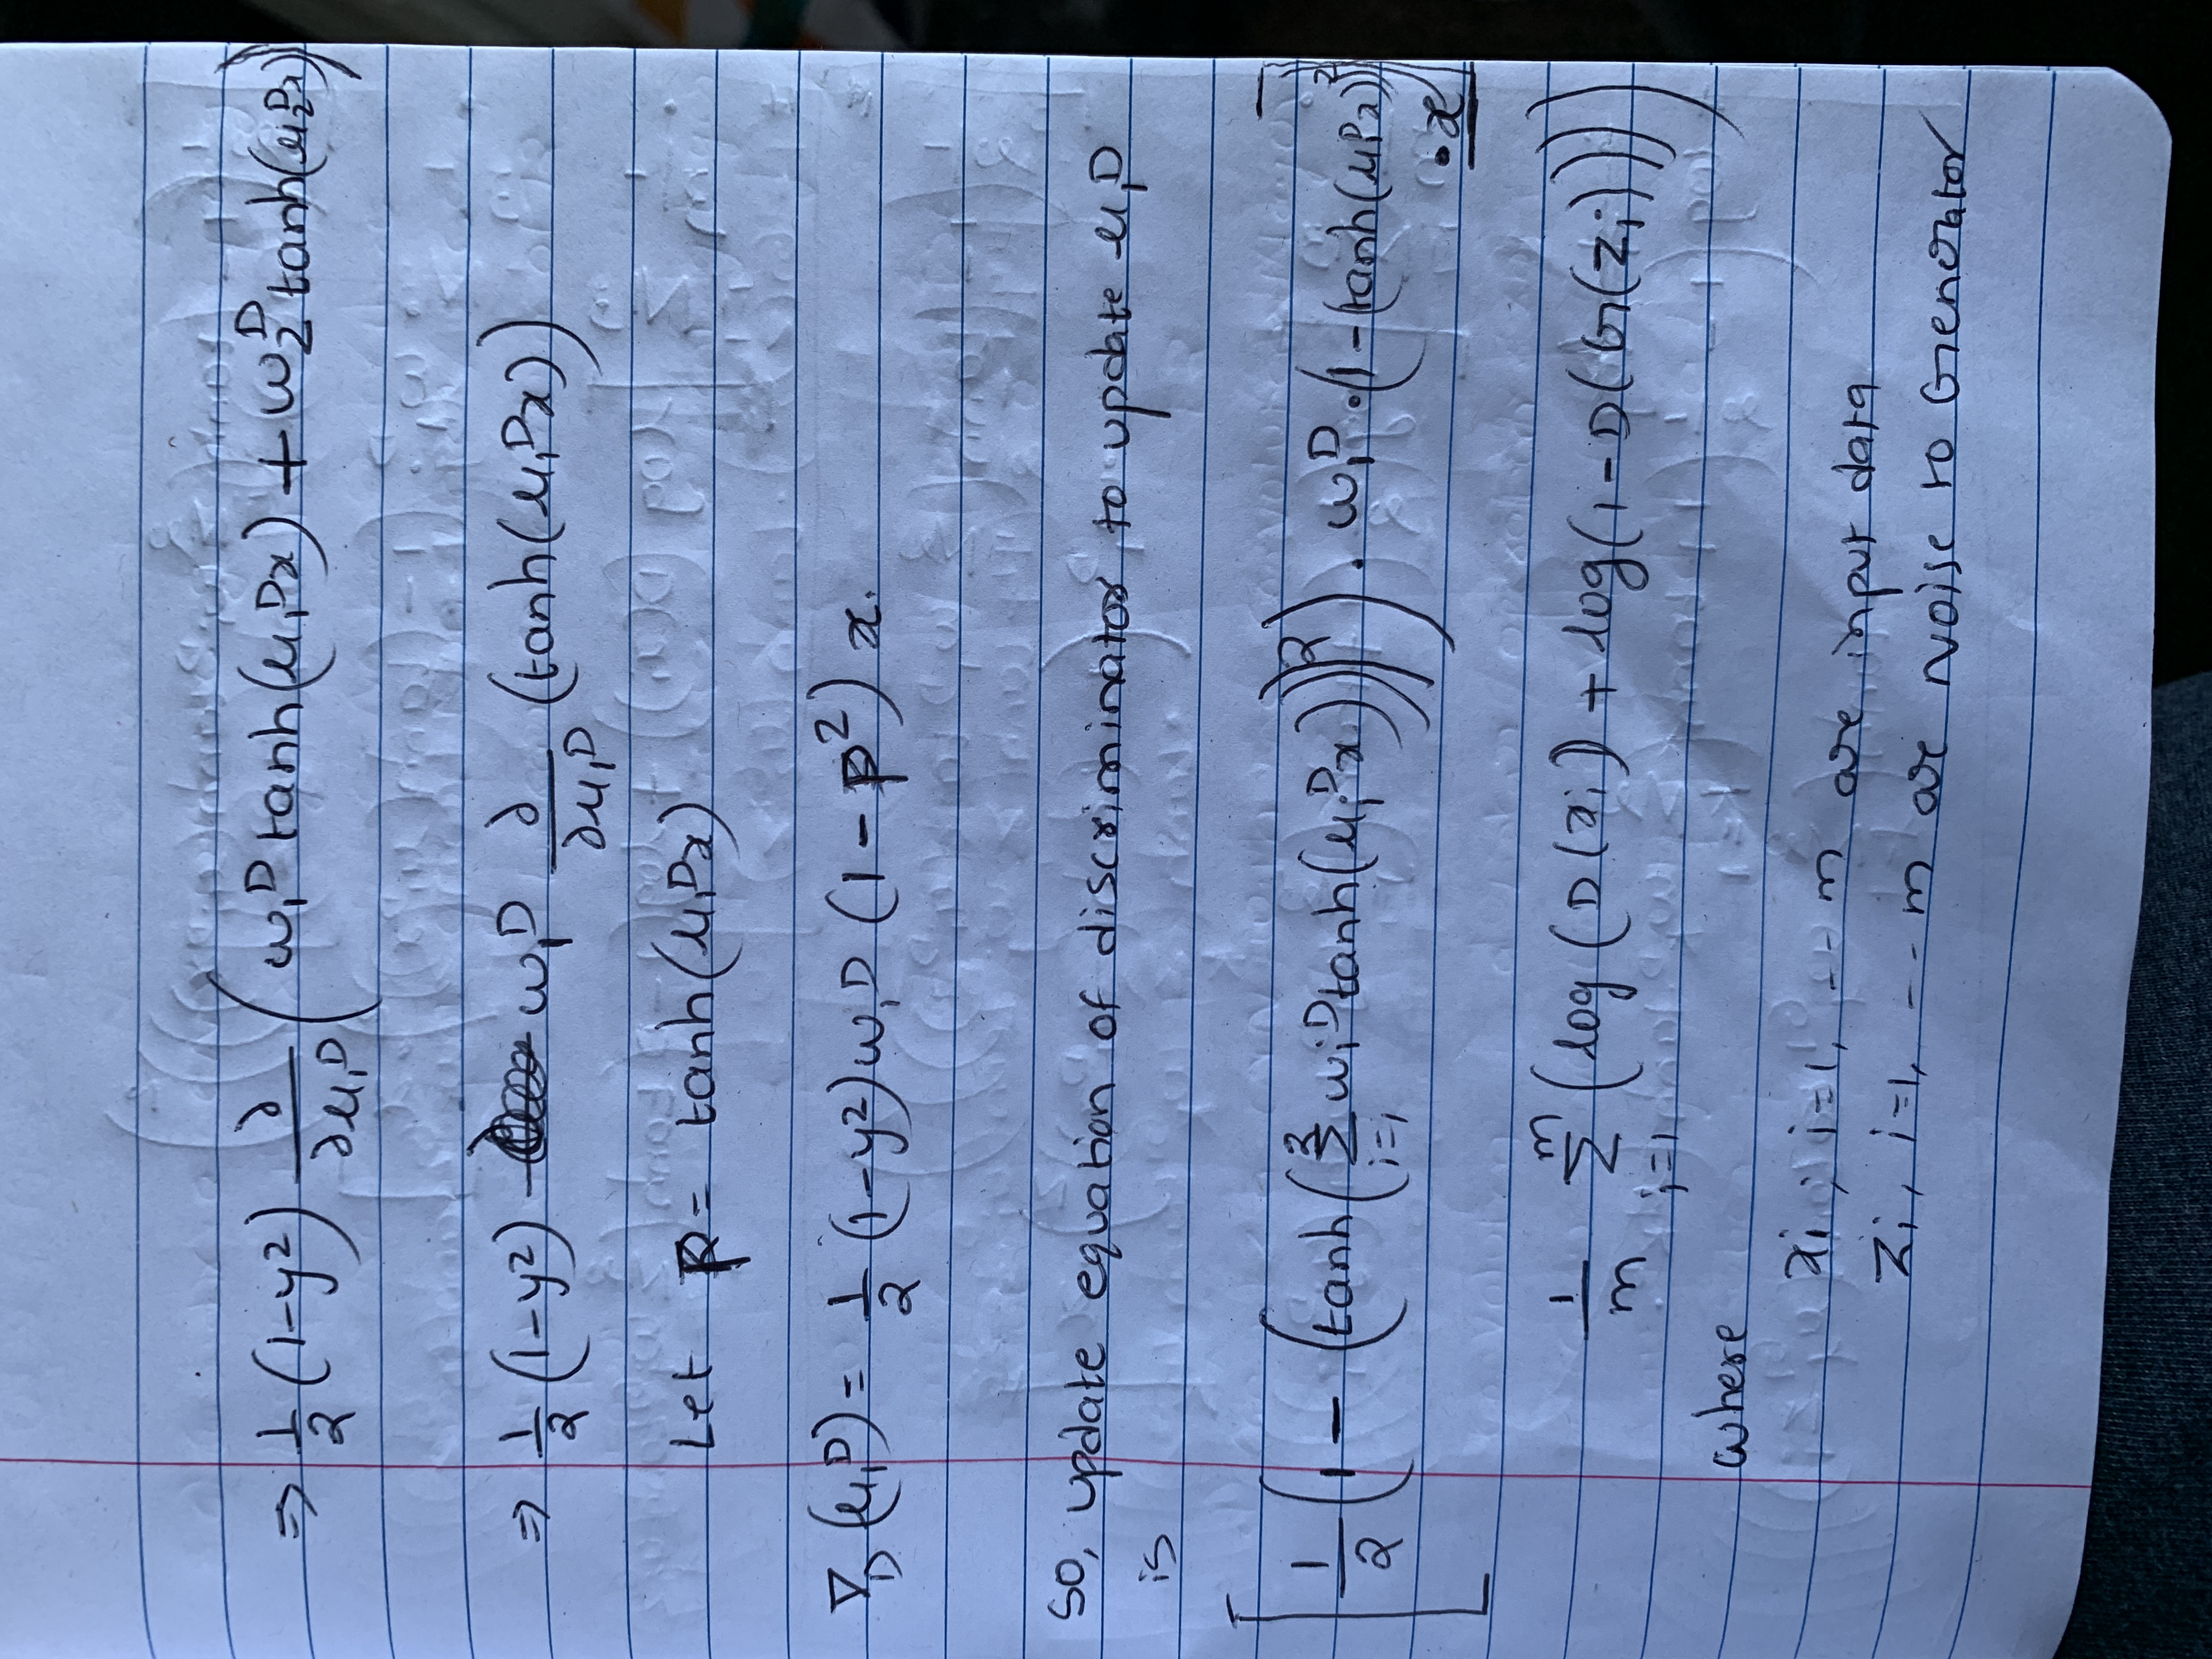 ⇒ 1/2 (1-y²) ∂/∂u₁ᴰ (w₁ᴰ tanh(u₁ᴰx) + w₂ᴰ tanh(u₂ᴰx))
⇒ 1/2 (1-y²) w₁ᴰ ∂/∂u₁ᴰ (tanh(u₁ᴰx))
Let p = tanh(u₁ᴰx)
∇_D (u₁ᴰ) = 1/2 (1-y²) w₁ᴰ (1-p²) x.
So, update equation of discriminator to update u₁ᴰ
is
[1/2 (1 - (tanh(Σ_{i=i}^{2} wᵢᴰ tanh(uᵢᴰx)))²) . w₁ᴰ . (1-(tanh(u₁ᴰx))²)
. x]
1/m Σ_{i=1}^{m} (log(D(xᵢ) + log(1-D(G(zᵢ)))))
where
xᵢ, i=1, --- m are input data
zᵢ, i=1, --- m are Noise to Generator